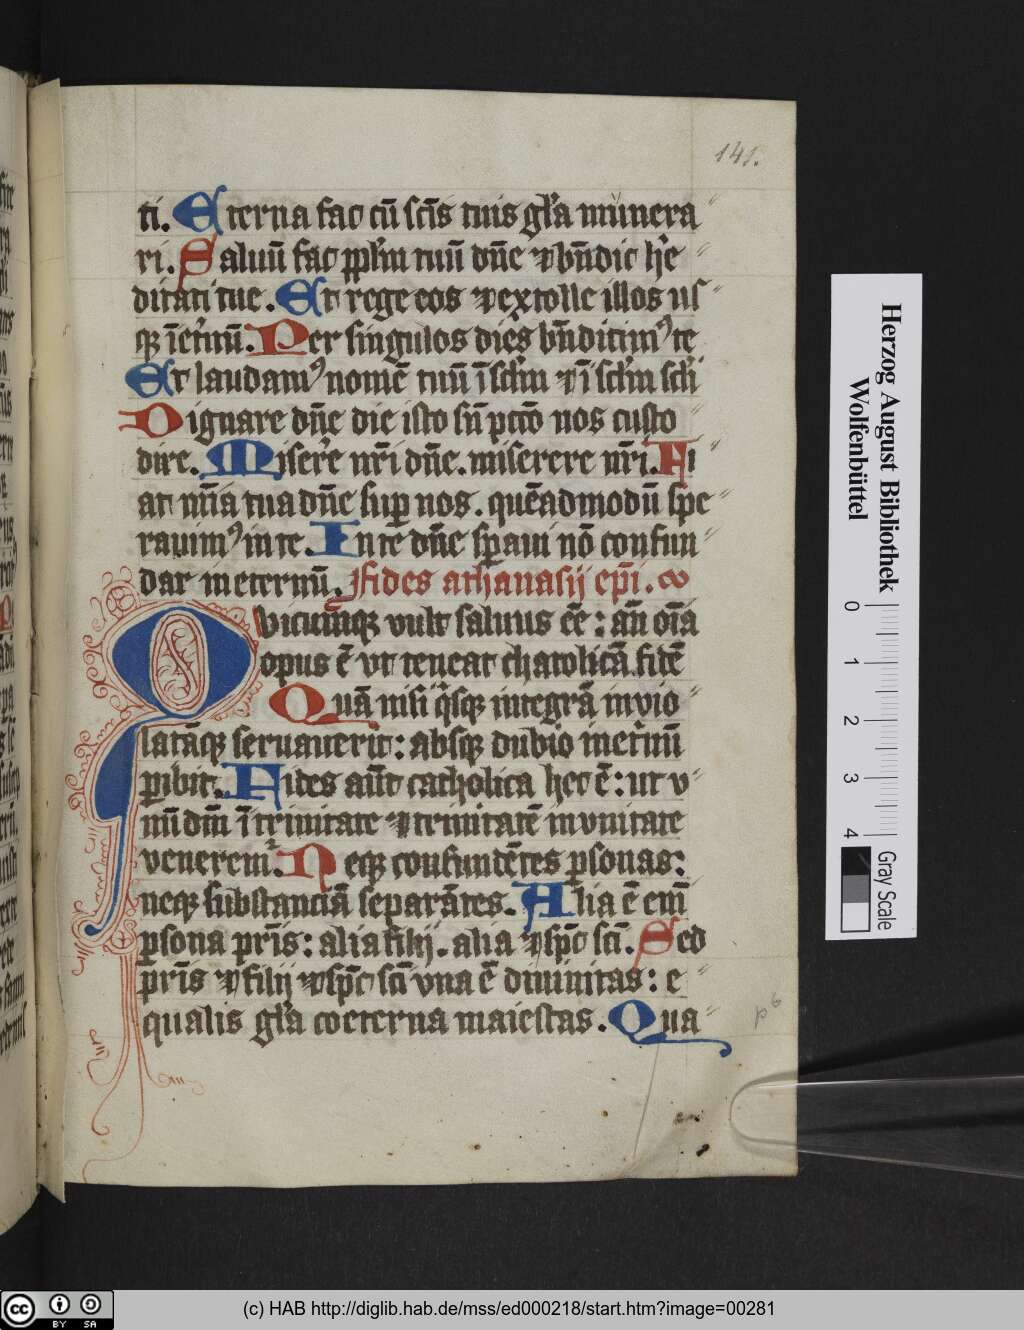 141.
ti. Eterna fac cū sctīs tuis gl'a munera
ri. Saluū fac ppl'm tuū dn̄e ⁊ bn̄dic he᷒
ditati tue. Et rege eos ⁊ extolle illos us
qꝫ ī et'nū. Per singulos dies bn̄dicimꝰ te
Et laudamꝰ nomē tuū ī scl'm ⁊ ī scl'm scl'i
Dignare dn̄e die isto sn̄ pctō nos custo
dire. Misere᷒ nr̄i dn̄e. miserere nr̄i. Fi
at mīa tua dn̄e suꝑ nos. quēadmodū spe
rauimꝰ in te. In te dn̄e sꝑaui nō confun
dar in eternū. Fides athanasij epī.
Quicunqꝫ vult saluus eē : an̄ oīa
opus ē vt teneat chatolicā fidē
Quā nisi q'sqꝫ integrā invio
latāqꝫ seruauerit: absqꝫ dubio in et'nū
ꝑibit. Fides aūt catholica hec ē: ut v
nū dm̄ ī trinitate ⁊ trinitatē in vnitate
venerem᷒. Neqꝫ confundētes ꝑsonas:
neqꝫ substanciā separātes. Alia ē em̄
ꝑsona pr̄is: alia filij. alia ⁊ spc̄ sctī. Sed
pr̄is ⁊ filij ⁊ spc̄ sctī vna ē diuinitas: e
qualis gl'a coeterna maiestas. Qua
Herzog August Bibliothek
Wolfenbüttel
0 1 2 3 4
Gray Scale
cc BY SA
(c) HAB http://diglib.hab.de/mss/ed000218/start.htm?image=00281